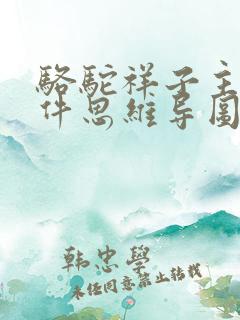 駱駝祥子主
件思維導圖
韩忠學
未经同意禁止转载